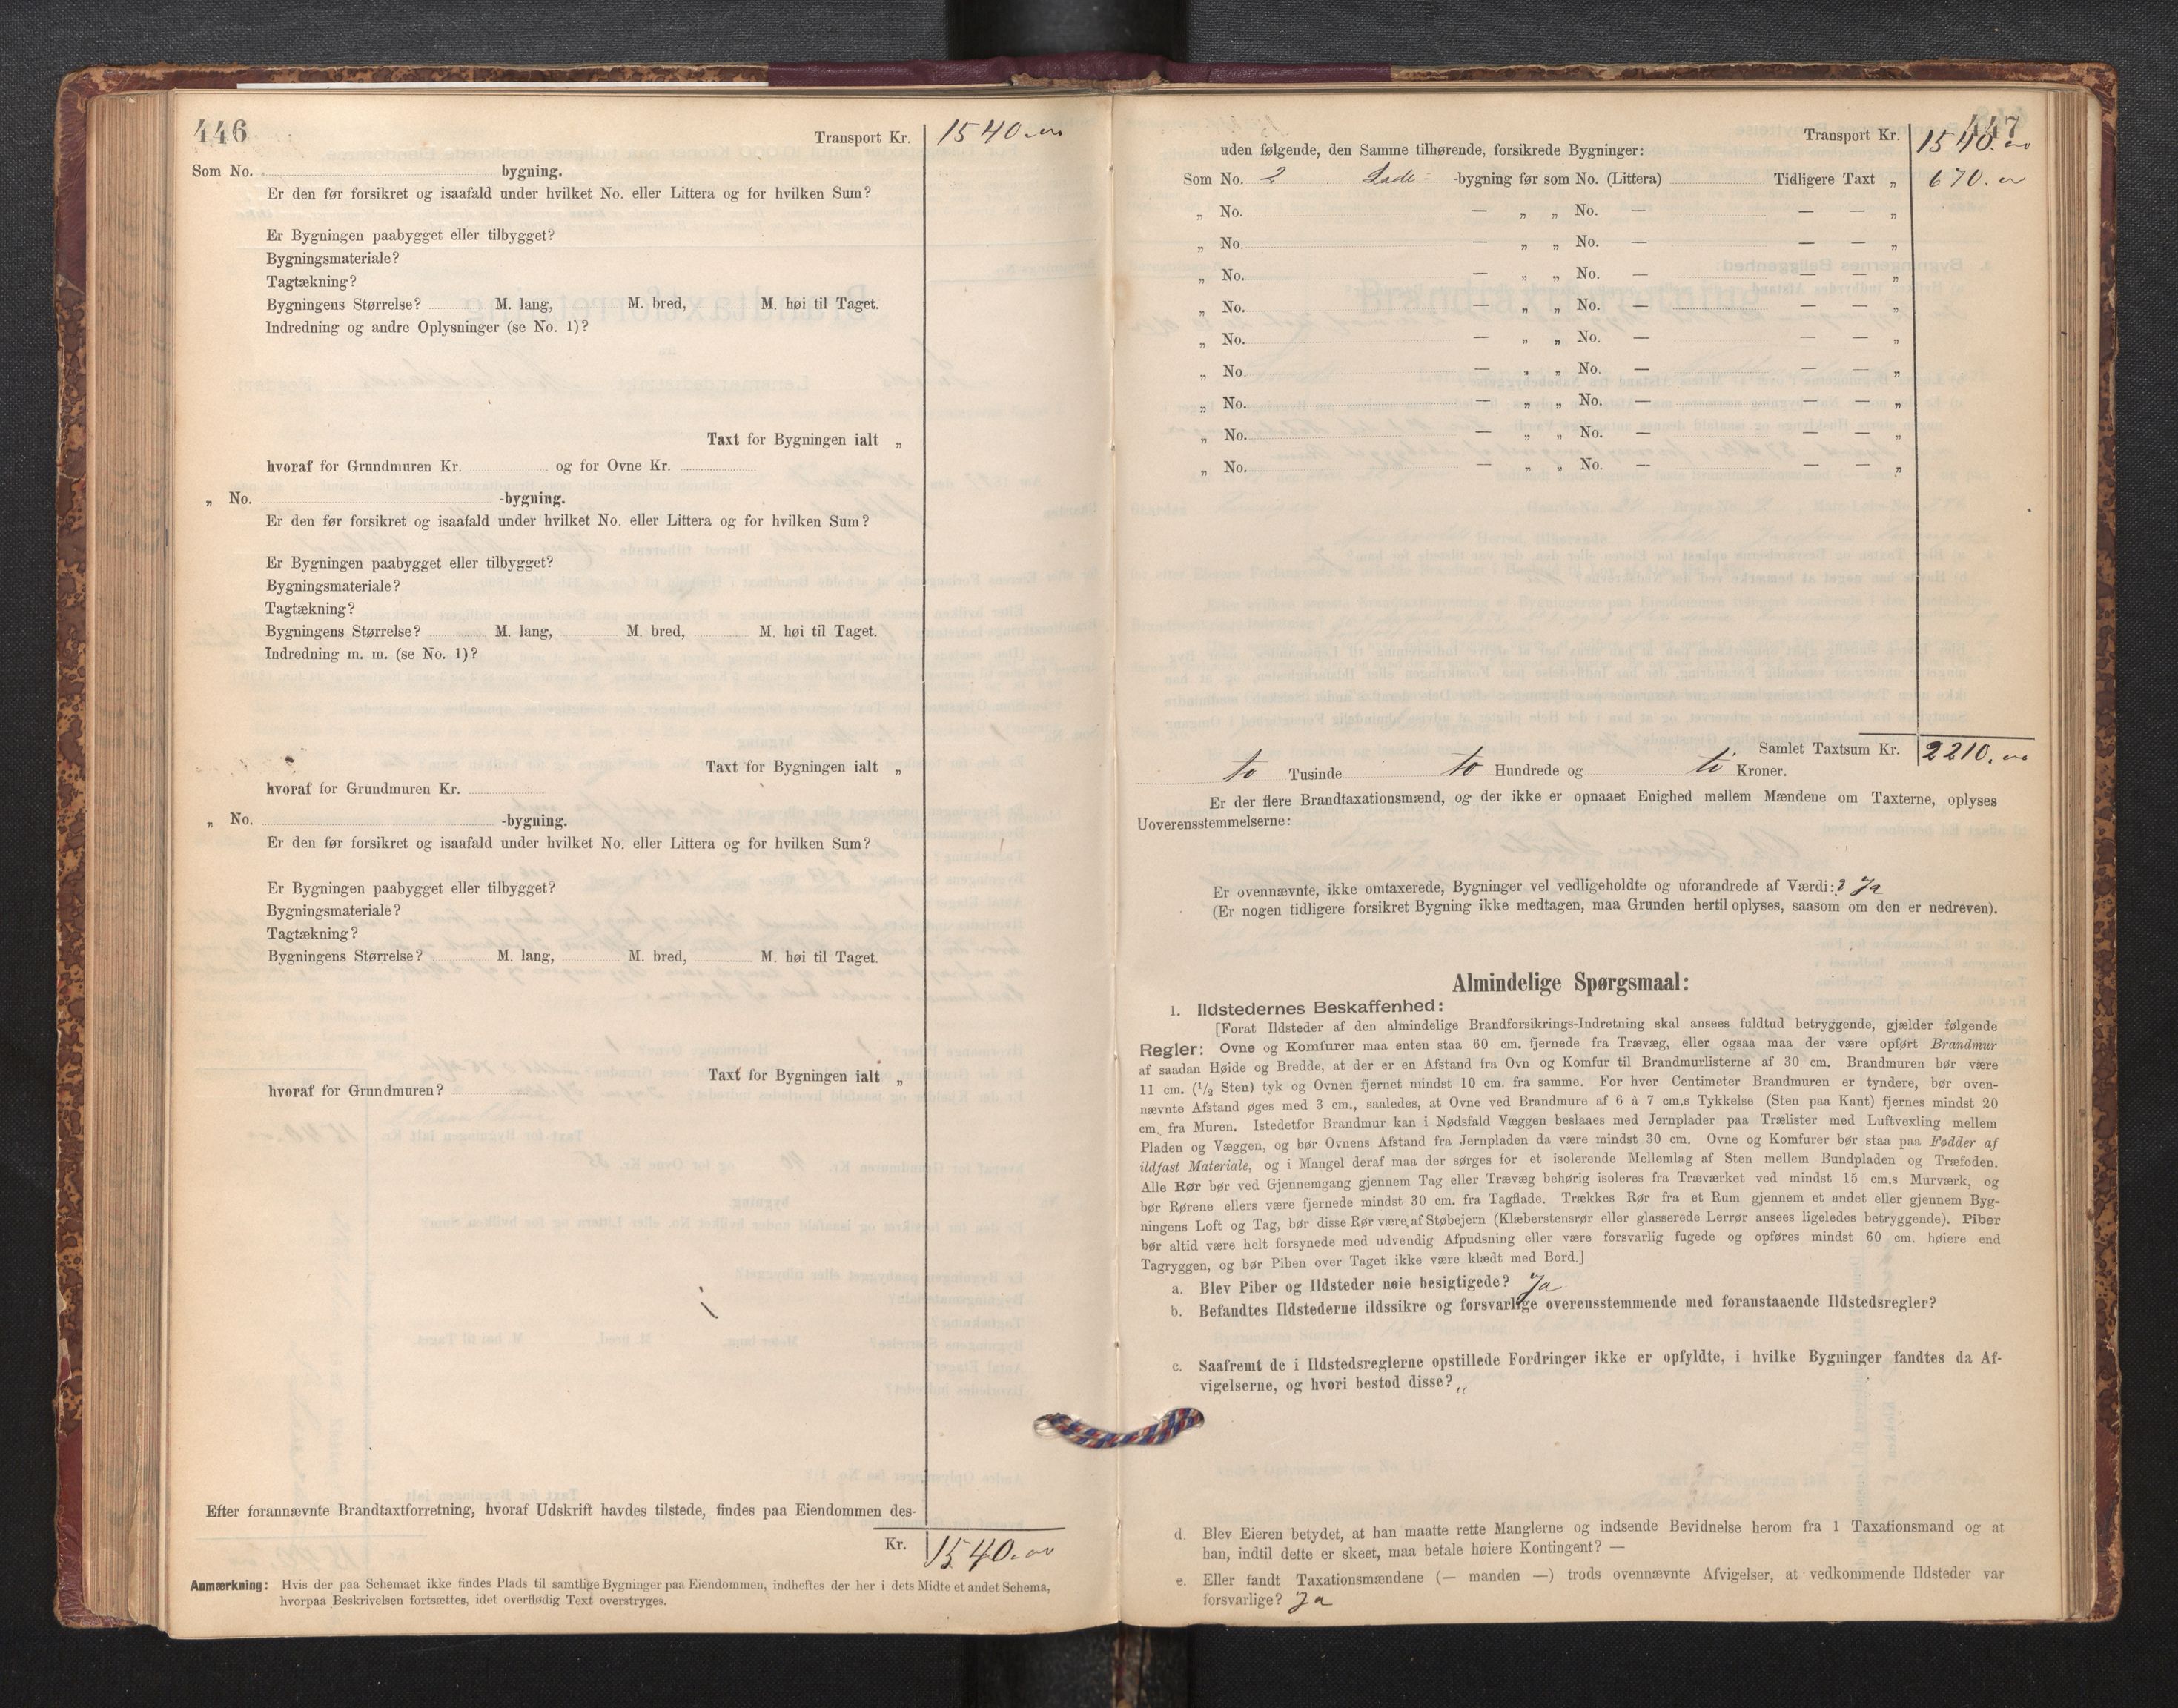 446
Transport Kr. 1540.00
Som No. bygning.
Er den før forsikret og isaafald under hvilket No. eller Littera og for hvilken Sum?
Er Bygningen paabygget eller tilbygget?
Bygningsmateriale?
Tagtækning?
Bygningens Størrelse? M. lang, M. bred, M. høi til Taget.
Indredning og andre Oplysninger (se No. 1)?
Taxt for Bygningen ialt „
hvoraf for Grundmuren Kr. og for Ovne Kr.
„ No. -bygning.
Er den før forsikret og isaafald under hvilket No. eller Littera og for hvilken Sum?
Er Bygningen paabygget eller tilbygget?
Bygningsmateriale?
Tagtækning?
Bygningens Størrelse? M. lang, M. bred, M. høi til Taget.
Indredning m. m. (se No. 1)?
Taxt for Bygningen ialt „
hvoraf for Grundmuren Kr.
„ No. -bygning.
Er den før forsikret og isaafald under hvilket No. eller Littera og for hvilken Sum?
Er Bygningen paabygget eller tilbygget?
Bygningsmateriale?
Tagtækning?
Bygningens Størrelse? M. lang, M. bred, M. høi til Taget.
Taxt for Bygningen ialt „
hvoraf for Grundmuren?
Efter forannævnte Brandtaxtforretning, hvoraf Udskrift havdes tilstede, findes paa Eiendommen des-
Kr. 1540.00
Anmærkning: Hvis der paa Schemaet ikke findes Plads til samtlige Bygninger paa Eiendommen, indheftes der her i dets Midte et andet Schema,
hvorpaa Beskrivelsen fortsættes, idet overflødig Text overstryges.
447
Transport Kr. 1540.00
uden følgende, den Samme tilhørende, forsikrede Bygninger:
Som No. 2 Lade- -bygning før som No. (Littera) Tidligere Taxt „ 670.00
„ No. — „ „ No. — — — „
„ No. — „ „ No. — — — „
„ No. — „ „ No. — — — „
„ No. — „ „ No. — — — „
„ No. — „ „ No. — — — „
„ No. — „ „ No. — — — „
„ No. — „ „ No. — — — „
„ No. — „ „ No. — — — „
„ No. — „ „ No. — — — „
Samlet Taxtsum Kr. 2210.00
to Tusinde to Hundrede og ti Kroner.
Er der flere Brandtaxationsmænd, og der ikke er opnaaet Enighed mellem Mændene om Taxterne, oplyses
Uoverensstemmelserne:
Er ovennævnte, ikke omtaxerede, Bygninger vel vedligeholdte og uforandrede af Værdi:? Ja
(Er nogen tidligere forsikret Bygning ikke medtagen, maa Grunden hertil oplyses, saasom om den er nedreven).
Almindelige Spørgsmaal:
1. Ildstedernes Beskaffenhed:
[Forat Ildsteder af den almindelige Brandforsikrings-Indretning skal ansees fuldtud betryggende, gjælder følgende
Regler: Ovne og Komfurer maa enten staa 60 cm. fjernede fra Trævæg, eller ogsaa maa der være opført Brandmur
af saadan Høide og Bredde, at der er en Afstand fra Ovn og Komfur til Brandmurlisterne af 30 cm. Brandmuren bør være
11 cm. (1/2 Sten) tyk og Ovnen fjernet mindst 10 cm. fra samme. For hver Centimeter Brandmuren er tyndere, bør oven-
nævnte Afstand øges med 3 cm., saaledes, at Ovne ved Brandmure af 6 à 7 cm.s Tykkelse (Sten paa Kant) fjernes mindst 20
cm. fra Muren. Istedetfor Brandmur kan i Nødsfald Væggen beslaaes med Jernplader paa Trælister med Luftvexling mellem
Pladen og Væggen, og bør Ovnens Afstand fra Jernpladen da være mindst 30 cm. Ovne og Komfurer bør staa paa Fødder af
ildfast Materiale, og i Mangel deraf maa der sørges for et isolerende Mellemlag af Sten mellem Bundpladen og Træfoden.
Alle Rør bør ved Gjennemgang gjennem Tag eller Trævæg behørig isoleres fra Træværket ved mindst 15 cm.s Murværk, og
bør Rørene ellers være fjernede mindst 30 cm. fra Tagflade. Trækkes Rør fra et Rum gjennem et andet eller gjennem Byg-
ningens Loft og Tag, bør disse Rør være af Støbejern (Klæberstensrør eller glasserede Lerrør ansees ligeledes betryggende). Piber
bør altid være helt forsynede med udvendig Afpudsning eller være forsvarlig fugede og opføres mindst 60 cm. høiere end
Tagryggen, og bør Piben over Taget ikke være klædt med Bord.]
a. Blev Piber og Ildsteder nøie besigtigede? Ja
b. Befandtes Ildstederne ildssikre og forsvarlige overensstemmende med foranstaaende Ildstedsregler?
c. Saafremt de i Ildstedsreglerne opstillede Fordringer ikke er opfyldte, i hvilke Bygninger fandtes da Af-
vigelserne, og hvori bestod disse? „
d. Blev Eieren betydet, at han maatte rette Manglerne og indsende Bevidnelse herom fra 1 Taxationsmand og at
han, indtil dette er skeet, maa betale høiere Kontingent? —
e. Eller fandt Taxationsmændene (— manden —) trods ovennævnte Afvigelser, at vedkommende Ildsteder var
forsvarlige? Ja